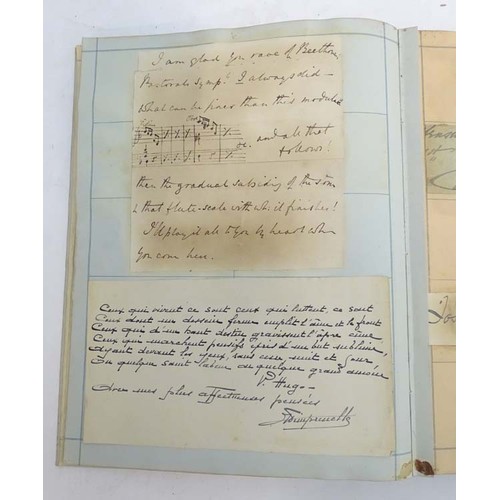 I am glad you rave of Beethov
Pastorale Symp.? I always did -
What can be finer than this modulat
&c. and all that
follows!
then the gradual subsiding of the storm
& that flute-scale with which it finishes!
I'll play it all to you by heart when
you come here.
Ceux qui vivent ce sont ceux qui luttent, ce sont
Ceux dont un dessein ferme emplit l'âme et le front
Ceux qui d'un haut destin gravissent l'âpre cime
Ceux qui marchent pensifs épris d'un but sublime,
Ayant devant les yeux, sans cesse nuit et jour
Ou quelque saint labeur ou quelque grand amour
V. Hugo -
Avec mes plus affectueuses pensées